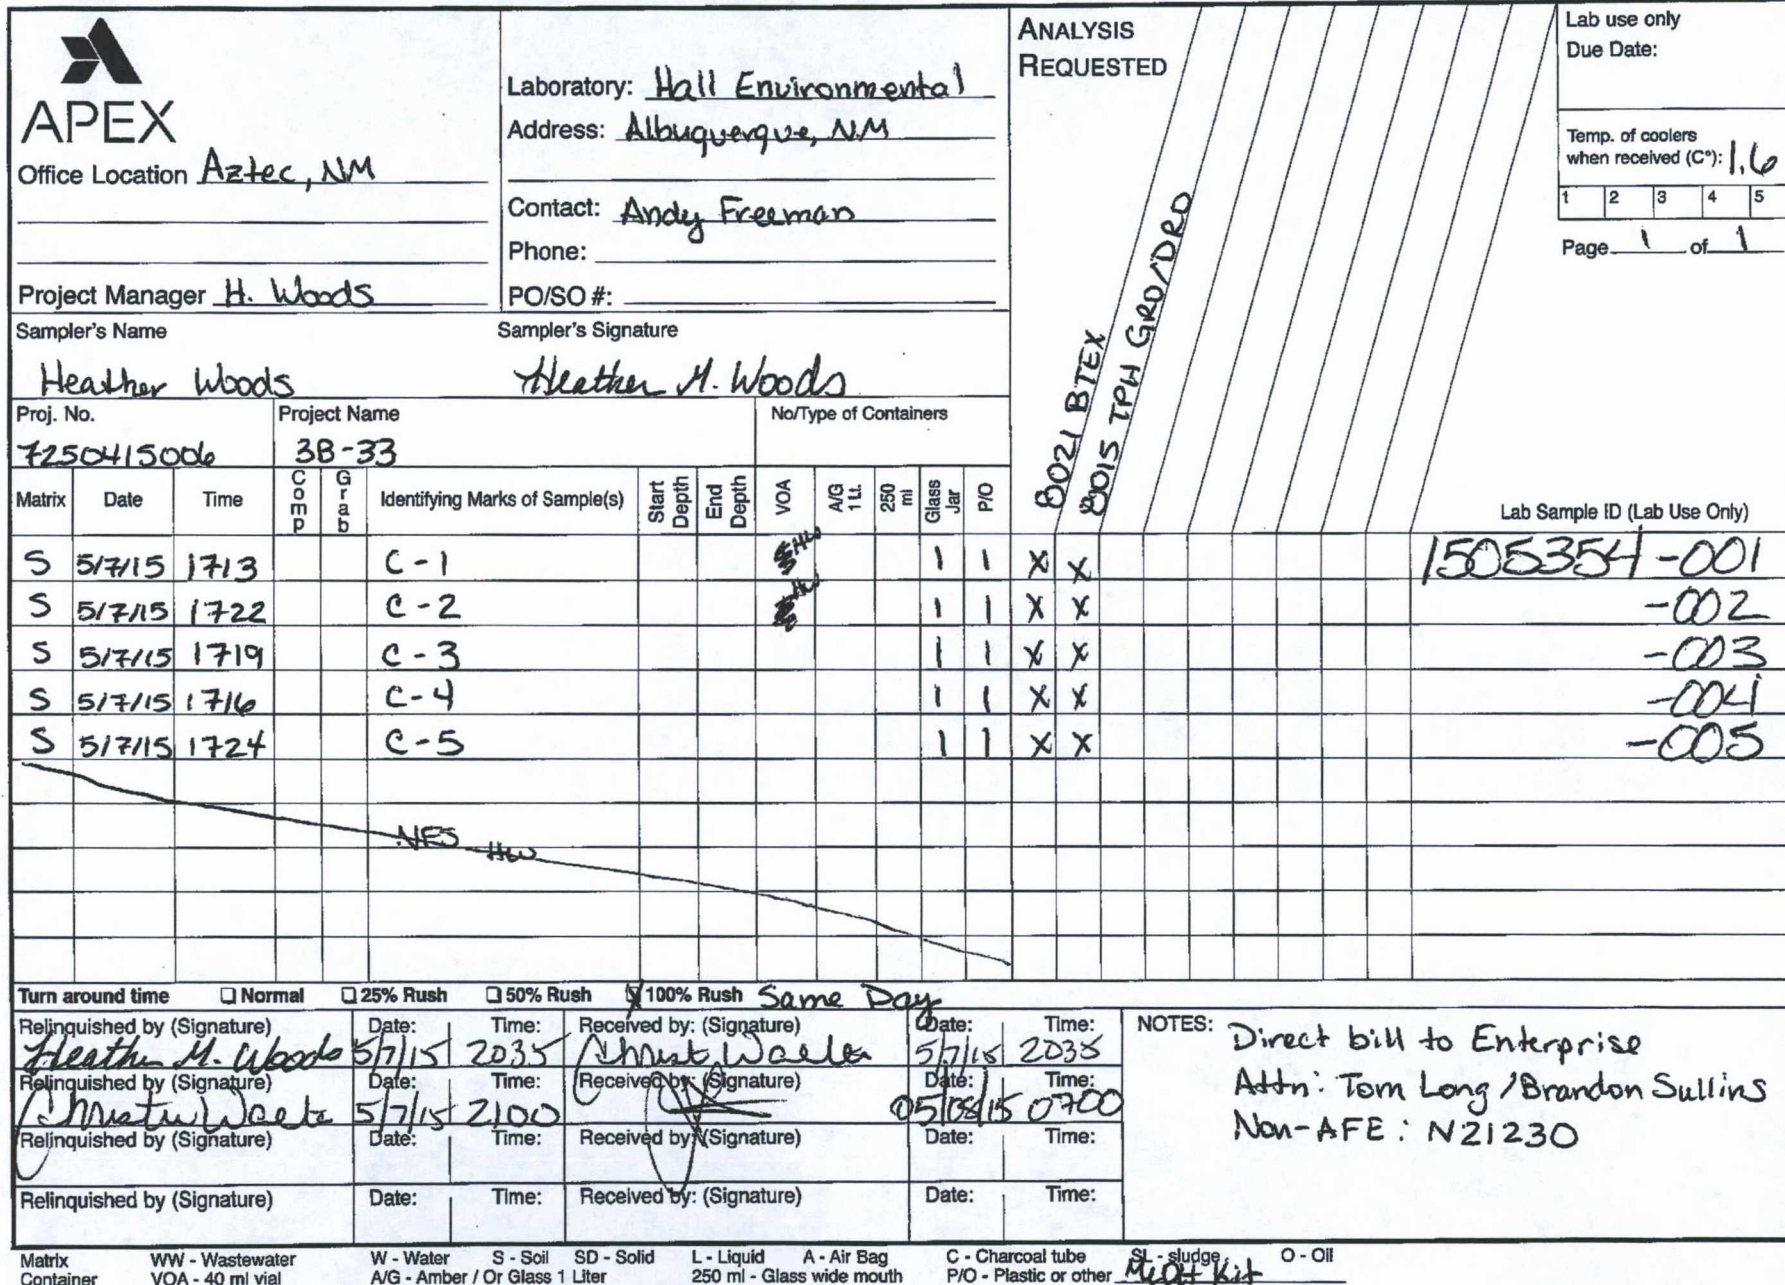 APEX
Office Location Aztec, NM
Project Manager H. Woods
Laboratory: Hall Environmental
Address: Albuquerque, NM
Contact: Andy Freeman
Phone:
PO/SO #:
ANALYSIS
REQUESTED
8021 BTEX
8015 TPH GRO/DRO
Lab use only
Due Date:
Temp. of coolers
when received (C°): 1.6
1 2 3 4 5
Page 1 of 1
Sampler's Name
Heather Woods
Sampler's Signature
Heather M. Woods
Proj. No.
7250415006
Project Name
3B-33
No/Type of Containers
Matrix Date Time Comp Grab Identifying Marks of Sample(s) Start Depth End Depth VOA A/G 1 Lt. 250 ml Glass Jar P/O Lab Sample ID (Lab Use Only)
S 5/7/15 1713 C-1 HW 1 1 X X 1505354-001
S 5/7/15 1722 C-2 HW 1 1 X X -002
S 5/7/15 1719 C-3 1 1 X X -003
S 5/7/15 1716 C-4 1 1 X X -004
S 5/7/15 1724 C-5 1 1 X X -005
NFS HW
Turn around time Normal 25% Rush 50% Rush X 100% Rush Same Day
Relinquished by (Signature) Date: Time: Received by: (Signature) Date: Time:
Heather M. Woods 5/7/15 2035 5/7/15 2035
Relinquished by (Signature) Date: Time: Received by: (Signature) Date: Time:
5/7/15 2100 05/08/15 0700
Relinquished by (Signature) Date: Time: Received by: (Signature) Date: Time:
Relinquished by (Signature) Date: Time: Received by: (Signature) Date: Time:
NOTES: Direct bill to Enterprise
Attn: Tom Long / Brandon Sullins
Non-AFE: N21230
Matrix WW - Wastewater W - Water S - Soil SD - Solid L - Liquid A - Air Bag C - Charcoal tube SL - sludge O - Oil
Container VOA - 40 ml vial A/G - Amber / Or Glass 1 Liter 250 ml - Glass wide mouth P/O - Plastic or other MeOH Kit